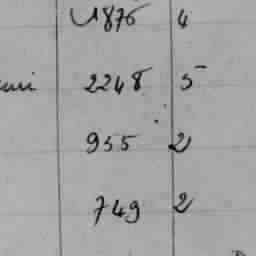 1876 4
2248 5
955 2
749 2